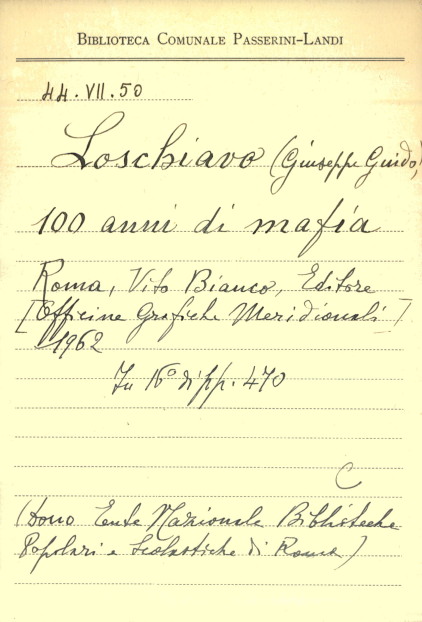 BIBLIOTECA COMUNALE PASSERINI-LANDI
44.VII.50
Loschiavo (Giuseppe Guido)
100 anni di mafia
Roma, Vito Bianco, Editore
[Officine Grafiche Meridionali]
1962
In 16° di pp. 470
C
(Dono Ente Nazionale Biblioteche
Popolari e Scolastiche di Roma)